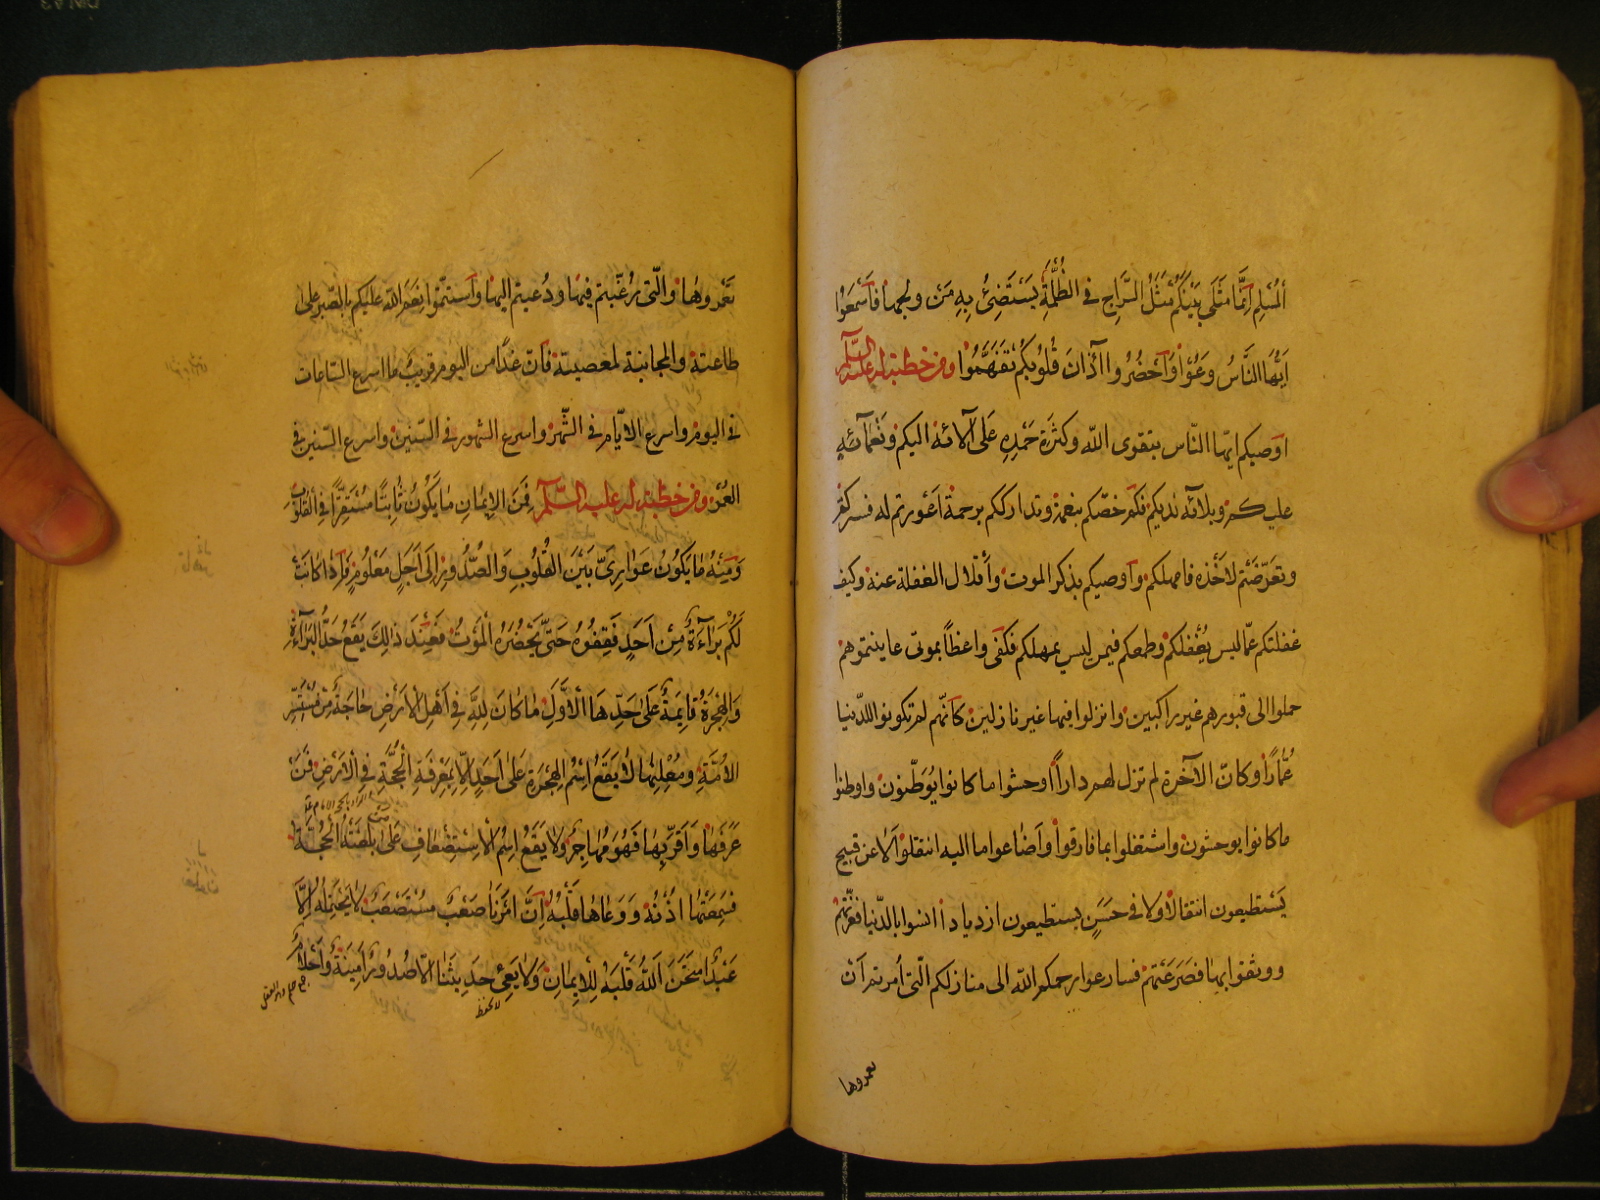 اَلْمُسْلِمِ اِنَّما مَثَلى بَيْنَكُمْ مَثَلُ السِّراجِ فى الظُّلْمَةِ يَسْتَضِئُ بِهِ مَنْ ولجها فاَسْمَعُوا
اَيُّهَا النَّاسُ وَعُوْا وَاَحْضُرُوا آذانَ قُلُوبِكُمْ تَفَهَّمُوا ومن خطبة له عليه السلام
اوصيكم ايّها النّاس بتقوى اللّه وكَثْرَةِ حَمْدِهِ عَلى آلائه اليكم وَنَعْمآئِهِ
عليكم وبلائه لديكم فكم خصّكم بنعمة وتدارككم برحمة اَعْورتم له فستركم
وتعرّضتم لاَخْذه فامهلكم واوصيكم بذكر الموت وأقلال الغفلة عنه وكيف
غفلتكم عمّا ليس يُغْفلكم وطمعكم فيمن ليس يمهلكم فكفى واعظاً بموتى عاينتموهم
حملوا الى قبورهم غير راكبين وانزلوا فيها غير نازلين كانّهم لم يكونوا للدّنيا
عُمّاراً وكانّ الآخرة لم تزل لهم داراً اوحشوا ما كانوا يُوَطّنون واوطنوا
ما كانوا يوحشون واشتغلوا بما فارقوا واَضاعوا ما اليه انتقلوا لا عن قبيح
يَسْتطيعون انتقالاً ولا فى حَسَنٍ يستطيعون ازديادا انسوا بالدّنيا فغرّتهم
ووثقوا بها فصَرَعَتهم فسارعوا رحمكم اللّه الى منازلكم الّتى اُمرتم اَن
تعمروها
تَعْمروها والّتى رُغّبتم فيها ودُعيتم اليها واستتمّوا نِعَم اللّه عليكم بالصّبر على
طاعته والمجانبة لمعصيته فانّ غداً من اليوم قريب ما اسرع السّاعات
فى اليوم واسرع الايّام فى الشّهر واسرع الشهور فى السّنين واسرع السّنين فى
العُمر ومن خطبة له عليه السّلام فَمِنَ الاِيمانِ ما يَكُونُ ثابِتاً مُسْتَقِرّاً فِى القُلُوبِ
وَمِنْهُ ما يَكُونُ عَوارِىَّ بَيْنَ القُلُوبِ وَالصُّدُورِ اِلى اَجَلٍ مَعْلُومٍ فَاِذا كانَتْ
لَكُمْ بَرآءَةٌ مِنْ اَحَدٍ فَقِفُوهُ حَتّى يَحْضُرَهُ الْمَوْتُ فَعِنْدَ ذلِكَ يَقَعُ حَدُّ البَرآءَةِ
وَالهِجْرَةُ قايِمَةٌ عَلى حَدِّهَا الاَوَّلِ ما كانَ لِلّهِ فى اَهْلِ الاَرْضِ حاجَةٌ مِنْ مُسْتَسِرِّ
الاُمَّةِ ومُعْلِنِها لا يَقَعُ اِسْمُ الهِجْرَةِ عَلى اَحَدٍ اِلاّ بِمَعْرِفَةِ الْحُجَّةِ فِى الاَرْضِ فَمَنْ
عَرَفَها وَاَقَرَّ بِها فَهُوَ مُهاجِرٌ وَلا يَقَعُ اِسْمُ الاِسْتِضْعافِ عَلى مَنْ بَلَغَتْهُ الْحُجَّةُ
فَسَمِعَتْها اُذُنُهُ وَوَعاها قَلْبُهُ اِنَّ اَمْرَنا صَعْبٌ مُسْتَصْعَبٌ لا يَحْتَمِلُهُ اِلاّ
عَبْدٌ امْتَحَنَ اللّهُ قَلْبَهُ لِلاِيمانِ وَلا يَعِى حَدِيثَنا اِلاّ صُدُورٌ اَمِينَةٌ وَاَحْلامٌ
لا يحفظ